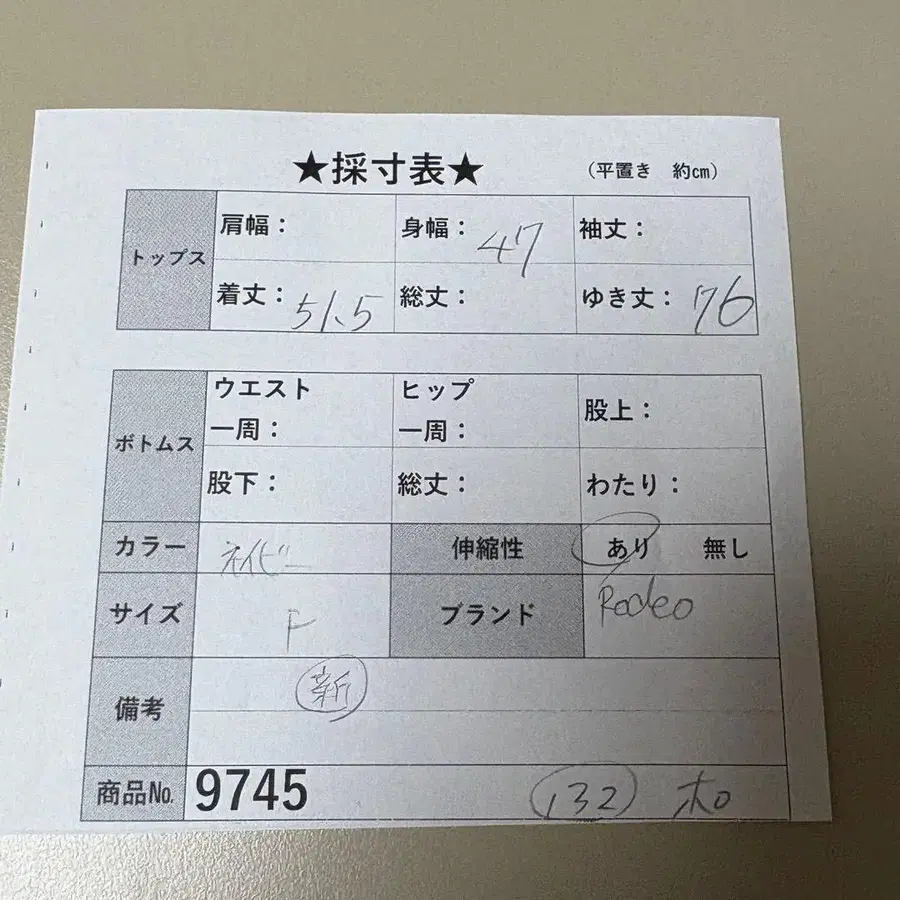 ★採寸表★ (平置き 約cm)
トップス
肩幅： 身幅：47 袖丈：
着丈：51.5 総丈： ゆき丈：76
ボトムス
ウエスト一周： ヒップ一周： 股上：
股下： 総丈： わたり：
カラー ネイビー 伸縮性 あり 無し
サイズ F ブランド Rodeo
備考 新
商品No. 9745 132 ホ